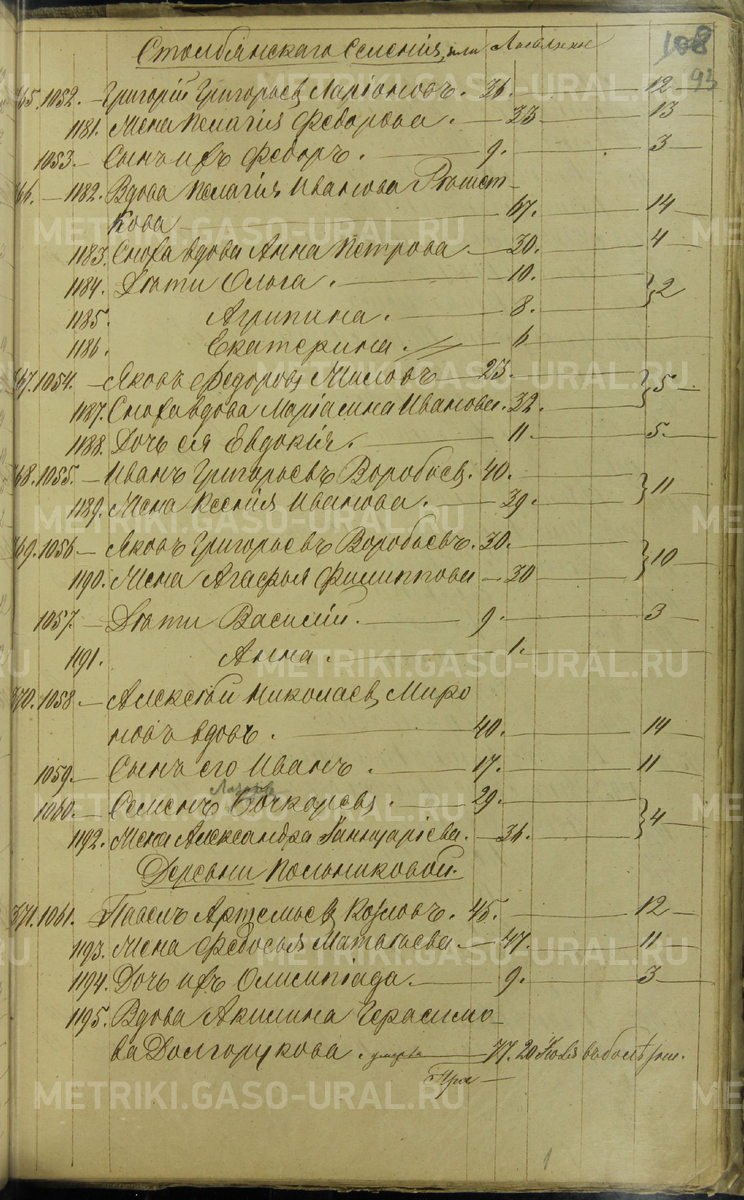 Столбянскаго Селенія, или
108
93
365. 1052. — Григорій Григорьевъ Ларіоновъ. 36. 12
1181. Жена Пелагія Федорова. — 33 — 13
1053. — Сынъ ихъ Федоръ. — 9. — 3
366. — 1182. Вдова Пелагія Иванова
кова — 67. — 14
1183. Сноха вдова Анна Петрова. — 30. — 4
1184. Дѣти Ольга. — 10. — } 2
1185. Агрипина. — 8.
1186. Екатерина. — 6
367. 1054. — Яковъ Федоровъ Миловъ — 23. — } 5
1187. Сноха вдова Маріамна Иванова. 32.
1188. Дочь ея Евдокія. — 11 — 5.
368. 1055. — Иванъ Григорьевъ Воробьевъ. 40. } 11
1189. Жена Ксенія Иванова. — 39.
369. 1056 — Яковъ Григорьевъ Воробьевъ. 30. } 10
1190. Жена Агафья Филиппова — 30
1057. — Дѣти Василій. — 9. — 3
1191. Анна. — 1.
370. 1058. — Алексѣй Николаевъ Миро
новъ вдовъ. — 40. — 14
1059. — Сынъ его Иванъ. — 17. — 11
1060. — Семенъ Бочкаревъ. — 29. — } 4
1192. Жена Александра Іаннуаріева. — 36.
Деревни Польниковой.
371. 1061. Павелъ Артемьевъ Козловъ. 45. — 12
1193. Жена Федосья Матвѣева. — 47. — 11
1194. Дочь ихъ Олимпіада. — 9. — 3
1195. Вдова Акилина Герасимо-
ва Долгорукова. умерла — 77. 20
METRIKI.GASO-URAL.RU